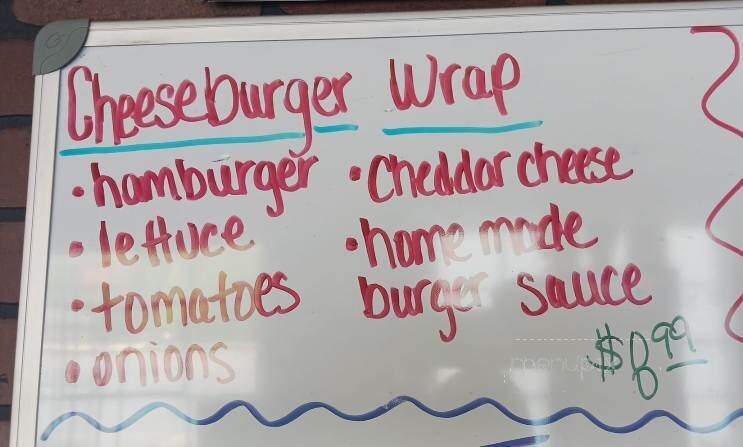 Cheeseburger Wrap
• hamburger • Cheddar cheese
• lettuce • home made
• tomatoes burger sauce
• onions $8.99